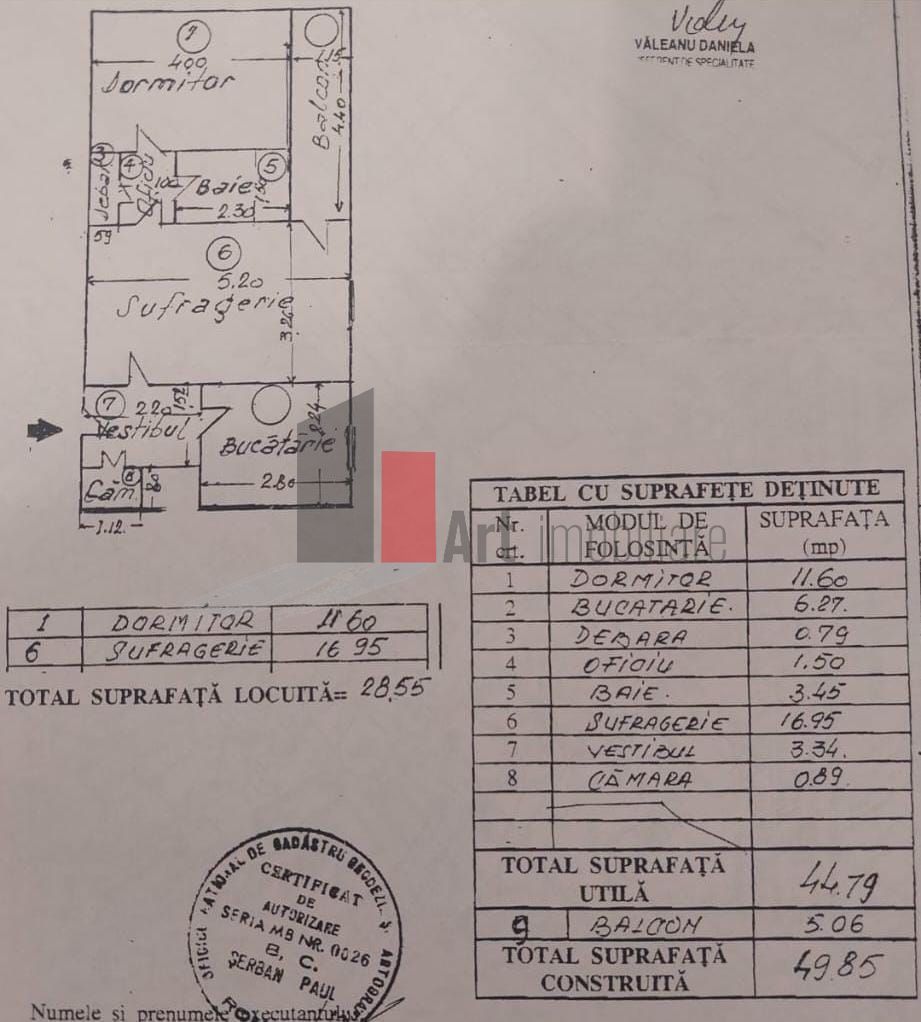 VĂLEANU DANIELA
REFERENT DE SPECIALITATE
1
400
Dormitor
1.15
Balcon
4.40
3
Debara
59
4
Oficiu
100
5
Baie
150
2.30
6
5.20
Sufragerie
3.26
7
220
152
Vestibul
Bucătărie
224
2.80
8
Căm.
80
1.12
Art imobiliare
1 DORMITOR 11.60
6 SUFRAGERIE 16.95
TOTAL SUPRAFAȚĂ LOCUITĂ= 28,55
TABEL CU SUPRAFEȚE DEȚINUTE
Nr. crt. MODUL DE FOLOSINȚĂ SUPRAFAȚA (mp)
1 DORMITOR 11.60
2 BUCATARIE. 6.27.
3 DEBARA 0.79
4 OFICIU 1.50
5 BAIE. 3.45
6 SUFRAGERIE 16.95
7 VESTIBUL 3.34.
8 CĂMARA 0.89.
TOTAL SUPRAFAȚĂ UTILĂ 44.79
9 BALCON 5.06
TOTAL SUPRAFAȚĂ CONSTRUITĂ 49.85
CERTIFICAT
DE
AUTORIZARE
SERIA MB NR. 0026
B, C.
ȘERBAN PAUL
Numele și prenumele executantului